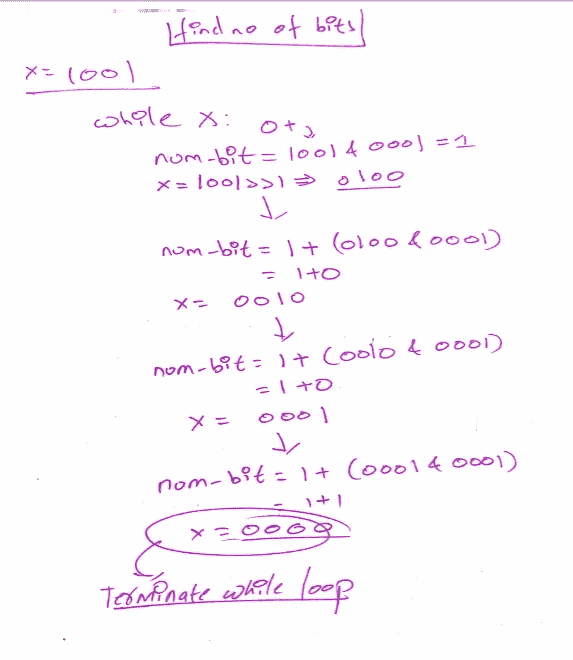 find no of bits
x = 1001
while x:
0+
num-bit = 1001 & 0001 = 1
x = 1001 >> 1 ⇒ 0100
↓
num-bit = 1 + (0100 & 0001)
= 1+0
x = 0010
↓
num-bit = 1 + (0010 & 0001)
= 1+0
x = 0001
↓
num-bit = 1 + (0001 & 0001)
= 1+1
x = 0000
Terminate while loop